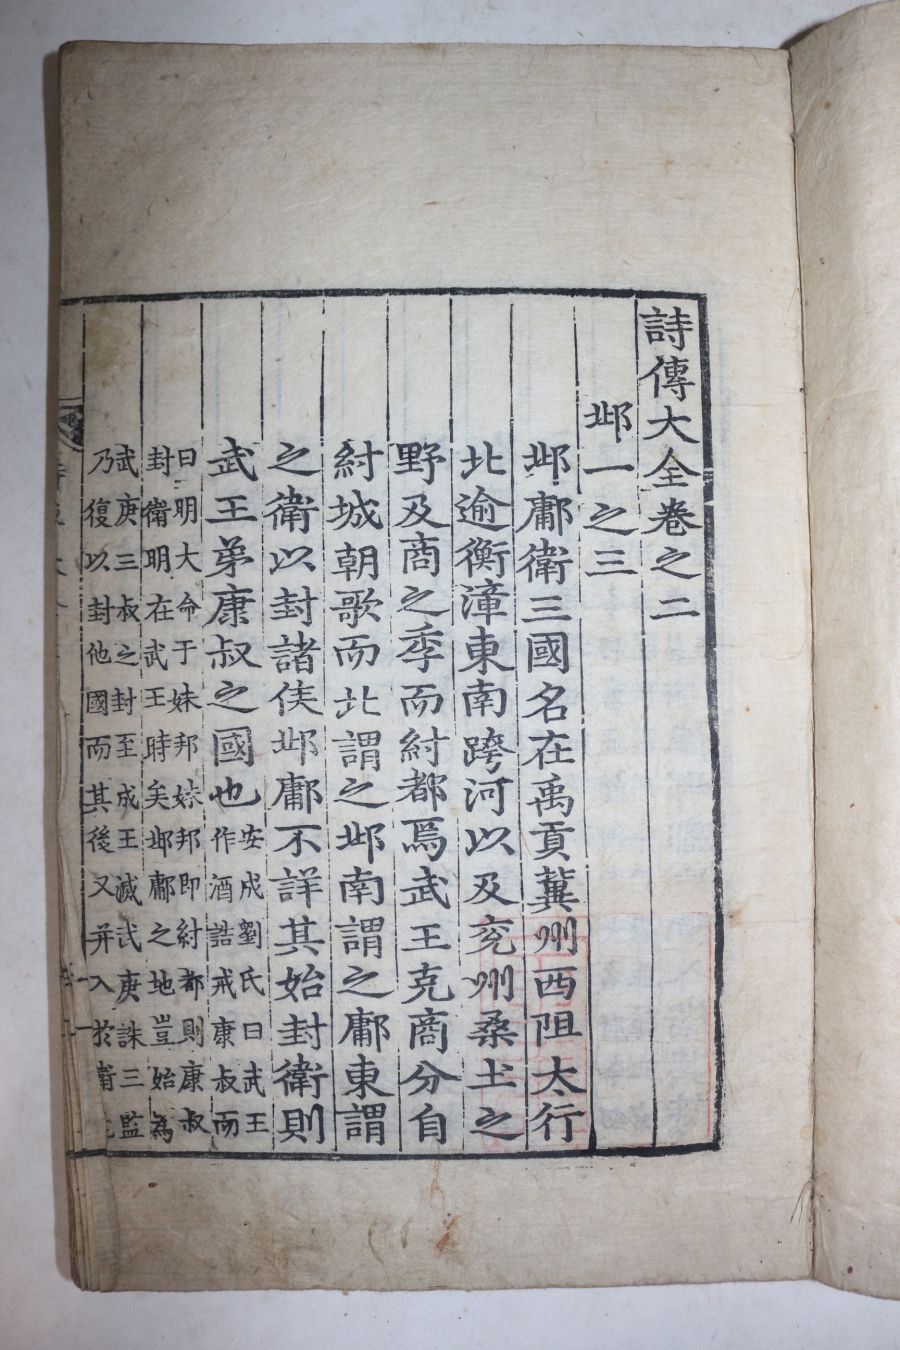 詩傳大全卷之二
邶一之三
邶鄘衛三國名在禹貢冀州西阻太行
北逾衡漳東南跨河以及兗州桑土之
野及商之季而紂都焉武王克商分自
紂城朝歌而北謂之邶南謂之鄘東謂
之衛以封諸侯邶鄘不詳其始封衛則
武王弟康叔之國也
安成劉氏曰武王
作酒誥戒康叔而
曰明大命于妹邦妹邦即紂都則康叔
封衛明在武王時矣邶鄘之地豈始為
武庚三叔之封至成王滅武庚誅三監
乃復以封他國而其後又并入於衛